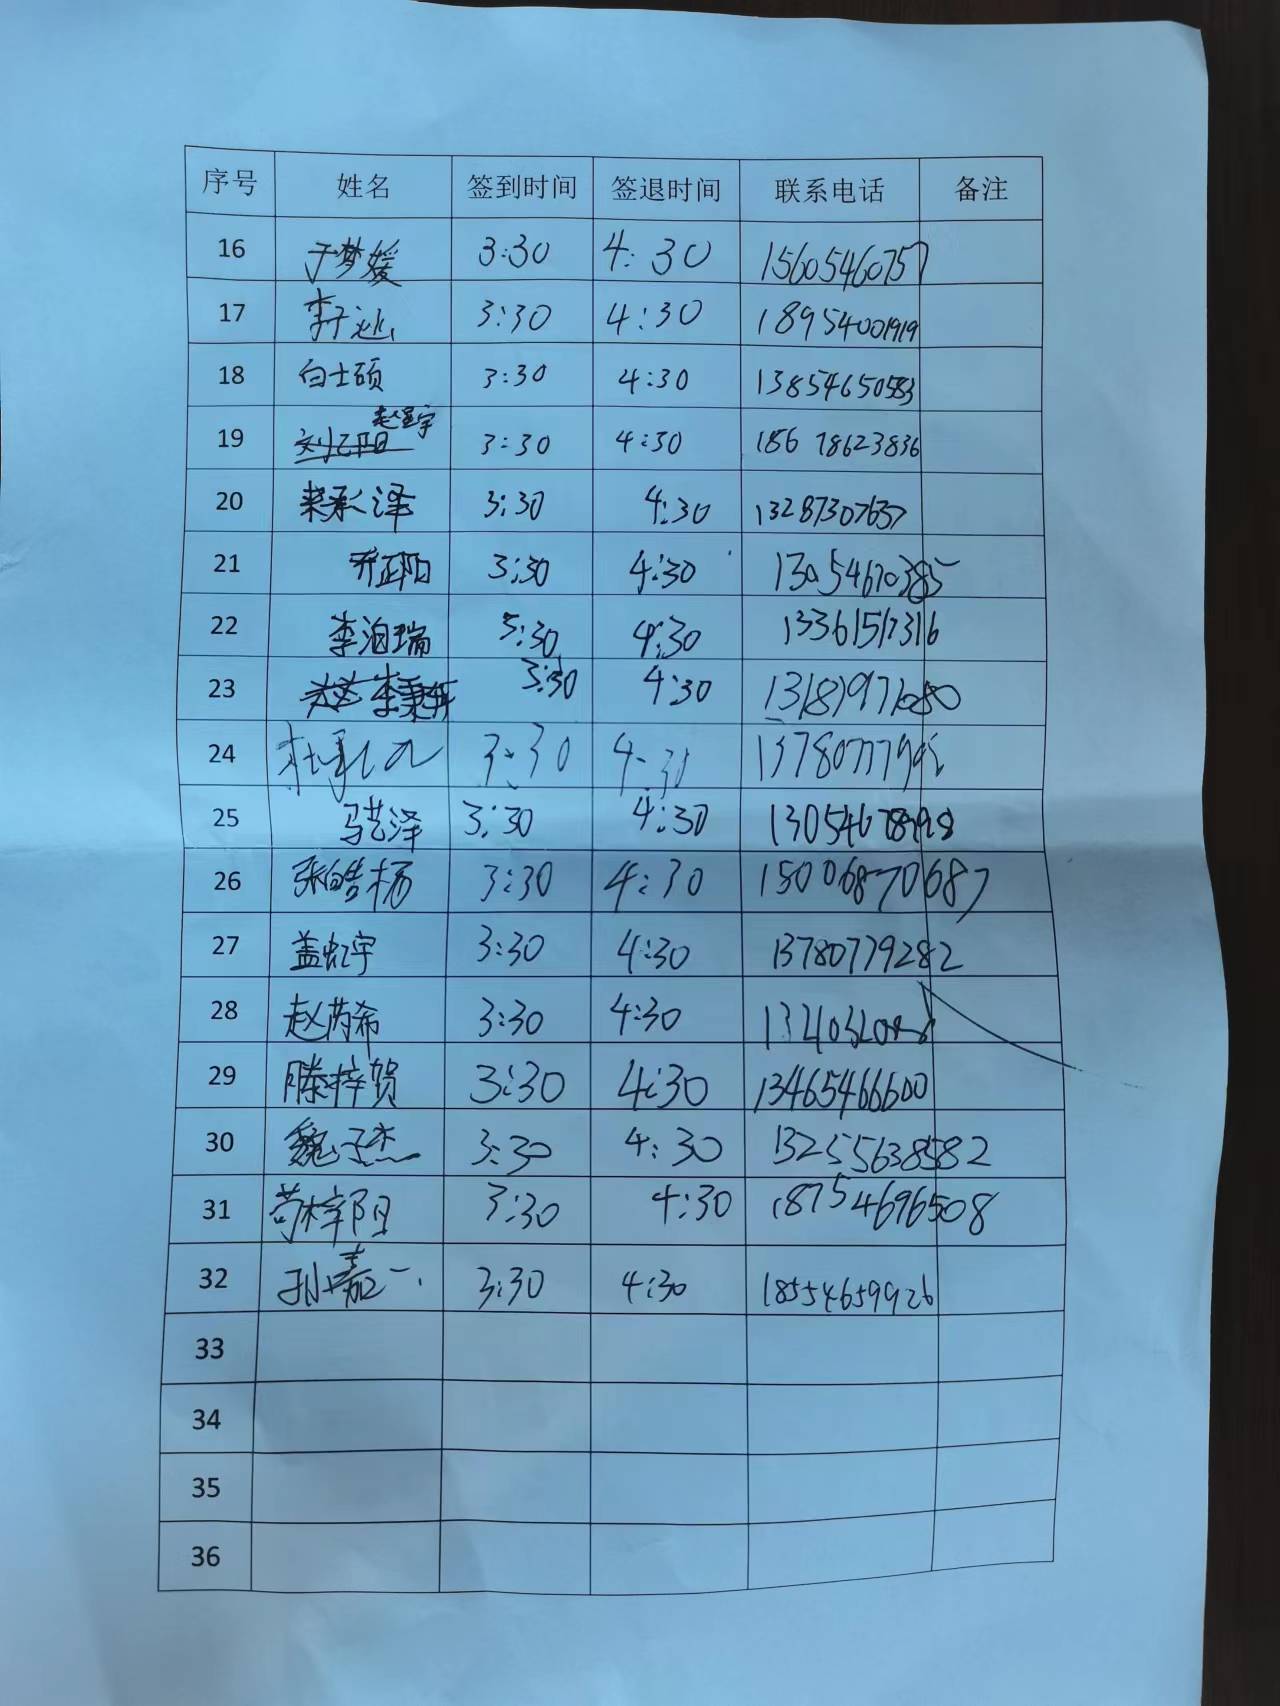 序号 姓名 签到时间 签退时间 联系电话 备注
16 于梦媛 3:30 4:30 15605460757
17 李子 3:30 4:30 18954001919
18 白士硕 3:30 4:30 13854650583
19 赵星宇 3:30 4:30 18678623836
20 承泽 3:30 4:30 13287307637
21 乔正阳 3:30 4:30 13054670385
22 李泊瑞 3:30 4:30 13361517316
23 李秉轩 3:30 4:30 13181971080
24 3:30 4:30
25 马艺泽 3:30 4:30
26 张皓杨 3:30 4:30 15006870687
27 盖虹宇 3:30 4:30 13780779282
28 赵芮希 3:30 4:30
29 滕梓贺 3:30 4:30 13465466600
30 魏子杰 3:30 4:30 13255638582
31 苟梓阳 3:30 4:30 18754696508
32 孙嘉一 3:30 4:30 18554659926
33
34
35
36